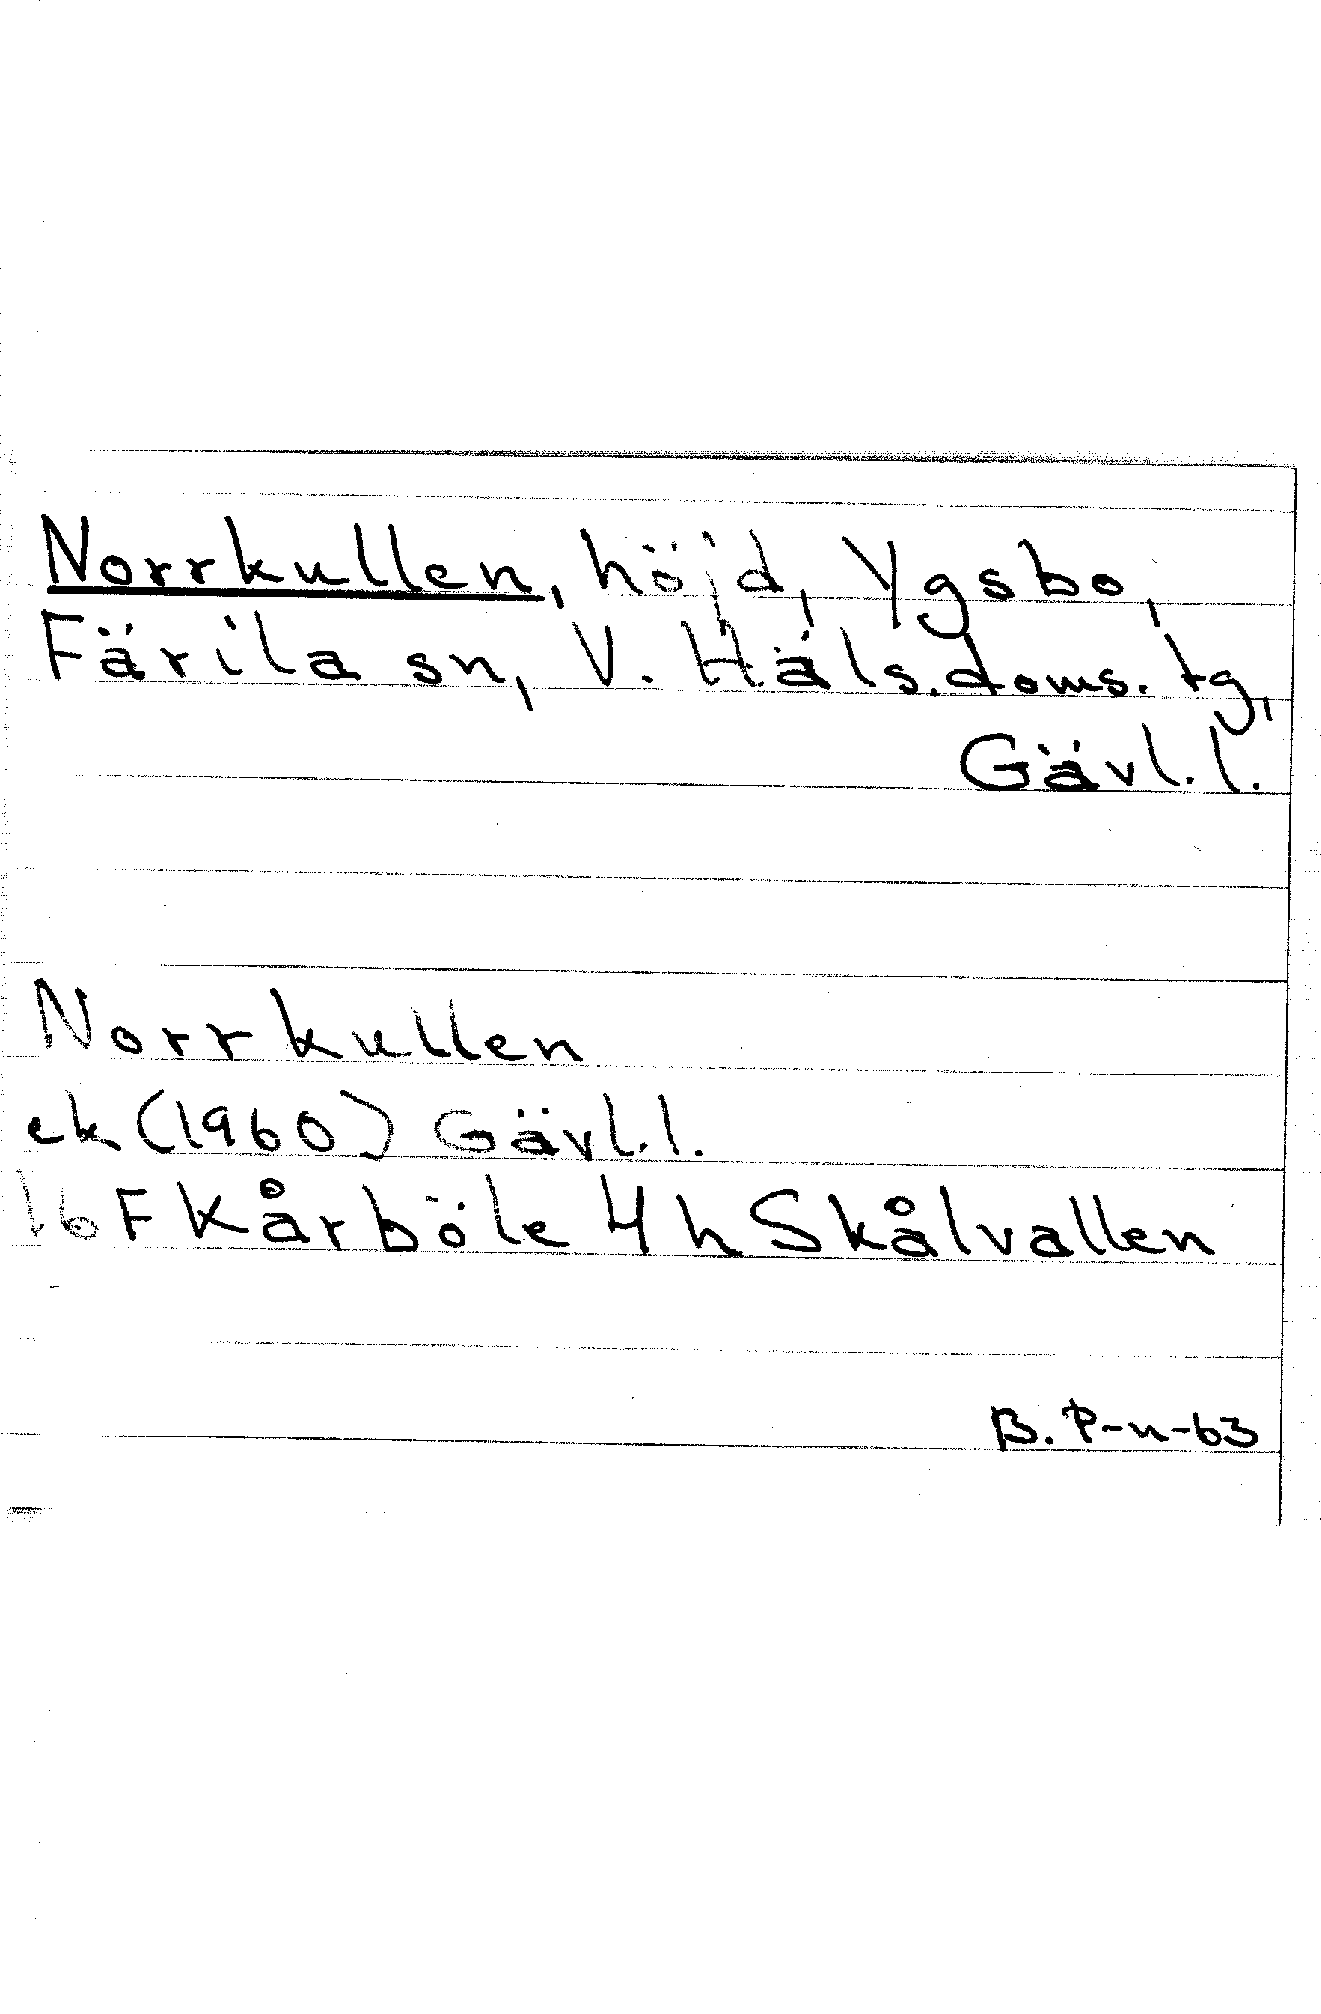 Norrkullen, höjd, Ygsbo,
Färila sn, V. Häls. doms. tg,
Gävl. l.
Norrkullen
ek (1960) Gävl. l.
16 F Kårböle 4 h Skålvallen
B. P-n-63